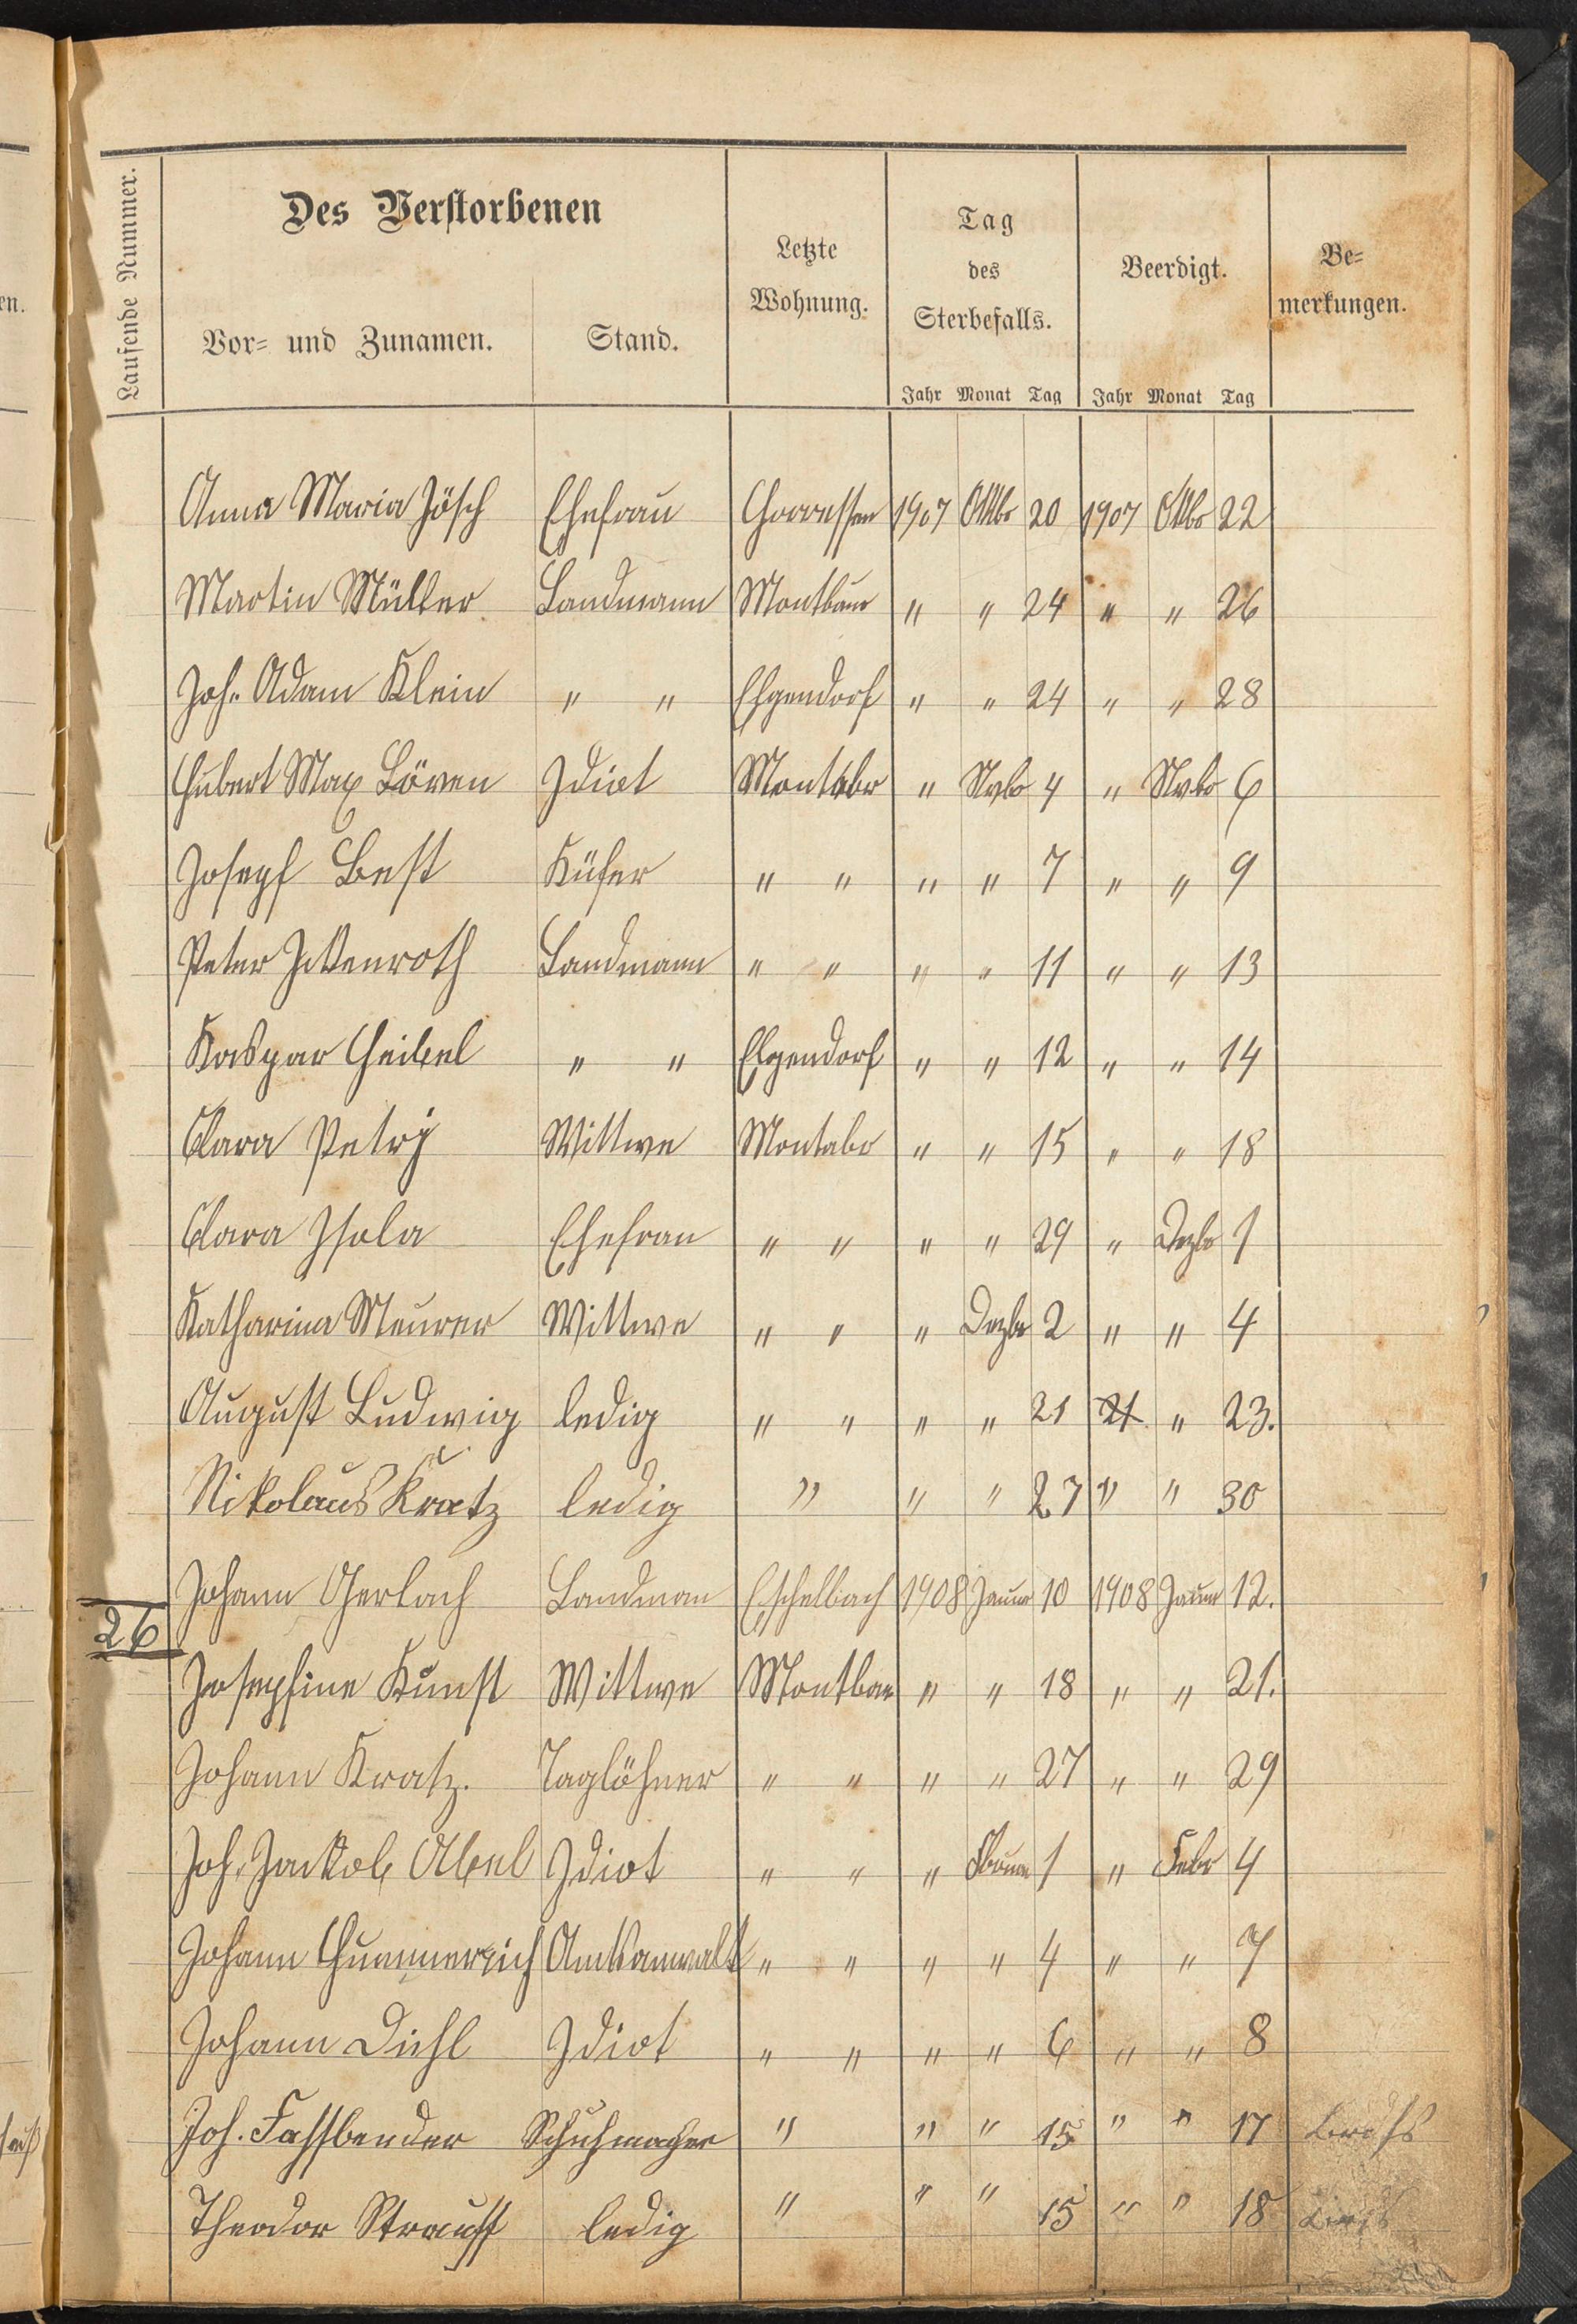 Laufende Nummer.
Des Verstorbenen
Vor- und Zunamen. Stand.
Letzte Wohnung.
Tag des Sterbefalls.
Beerdigt.
Be-
merkungen.
Jahr Monat Tag Jahr Monat Tag
Anna Maria Jösch Ehefrau Horressen 1907 Oktbr 20 1907 Oktbr 22
Martin Müller Landmann Montbaur " " 24 " " 26
Joh. Adam Klein " " Elgendorf " " 24 " " 28
Hubert Max Löven Idiot Montabr " Nvbr 4 " Nvbr 6
Josepf Best Küfer " " " " 7 " " 9
Peter Ittenroth Landmann " " " " 11 " " 13
Kaspar Heibel " " Elgendorf " " 12 " " 14
Clara Petry Wittwe Montabr " " 15 " " 18
Clara Isola Ehefrau " " " " 29 " Dezbr 1
Katharina Meurer Wittwe " " " Dezbr 2 " " 4
August Ludwig ledig " " " " 21 21 " 23.
Nikolaus Kratz ledig " " " 27 " " 30
Johann Gerlach Landman Eschelbach 1908 Januar 10 1908 Januar 12.
26
Josepfine Kunst Wittwe Montbaur " " 18 " " 21.
Johann Kratz. Taglöhner " " " " 27 " " 29
Joh. Jackob Abel Idiot " " " 1 " Febr 4
Johann Hummerich Amtsanwalt " " " " 4 " " 7
Johann Diehl Idiot " " " " 6 " " 8
Joh. Fassbender Schuhmacher " " " 15 " " 17
Theodor Strauss ledig " " " 15 " " 18